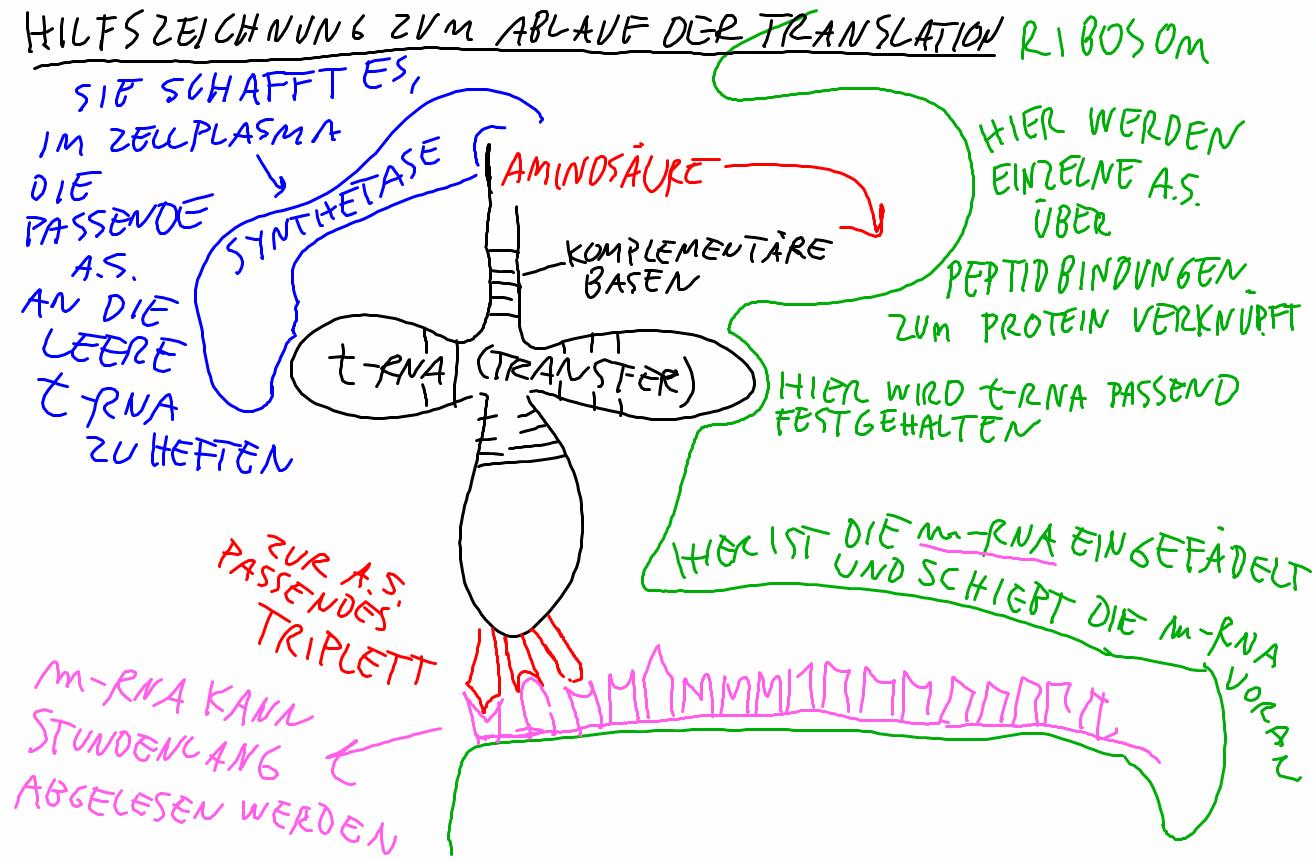 HILFSZEICHNUNG ZUM ABLAUF DER TRANSLATION
RIBOSOM
SIE SCHAFFT ES,
IM ZELLPLASMA
DIE
PASSENDE
A.S.
AN DIE
LEERE
t-RNA
ZU HEFTEN
SYNTHETASE
AMINOSÄURE
KOMPLEMENTÄRE
BASEN
HIER WERDEN
EINZELNE A.S.
ÜBER
PEPTIDBINDUNGEN
ZUM PROTEIN VERKNÜPFT
t-RNA (TRANSFER)
HIER WIRD t-RNA PASSEND
FESTGEHALTEN
HIER IST DIE m-RNA EINGEFÄDELT
UND SCHIEBT DIE m-RNA
VORAN
ZUR A.S.
PASSENDES
TRIPLETT
m-RNA KANN
STUNDENLANG
ABGELESEN WERDEN